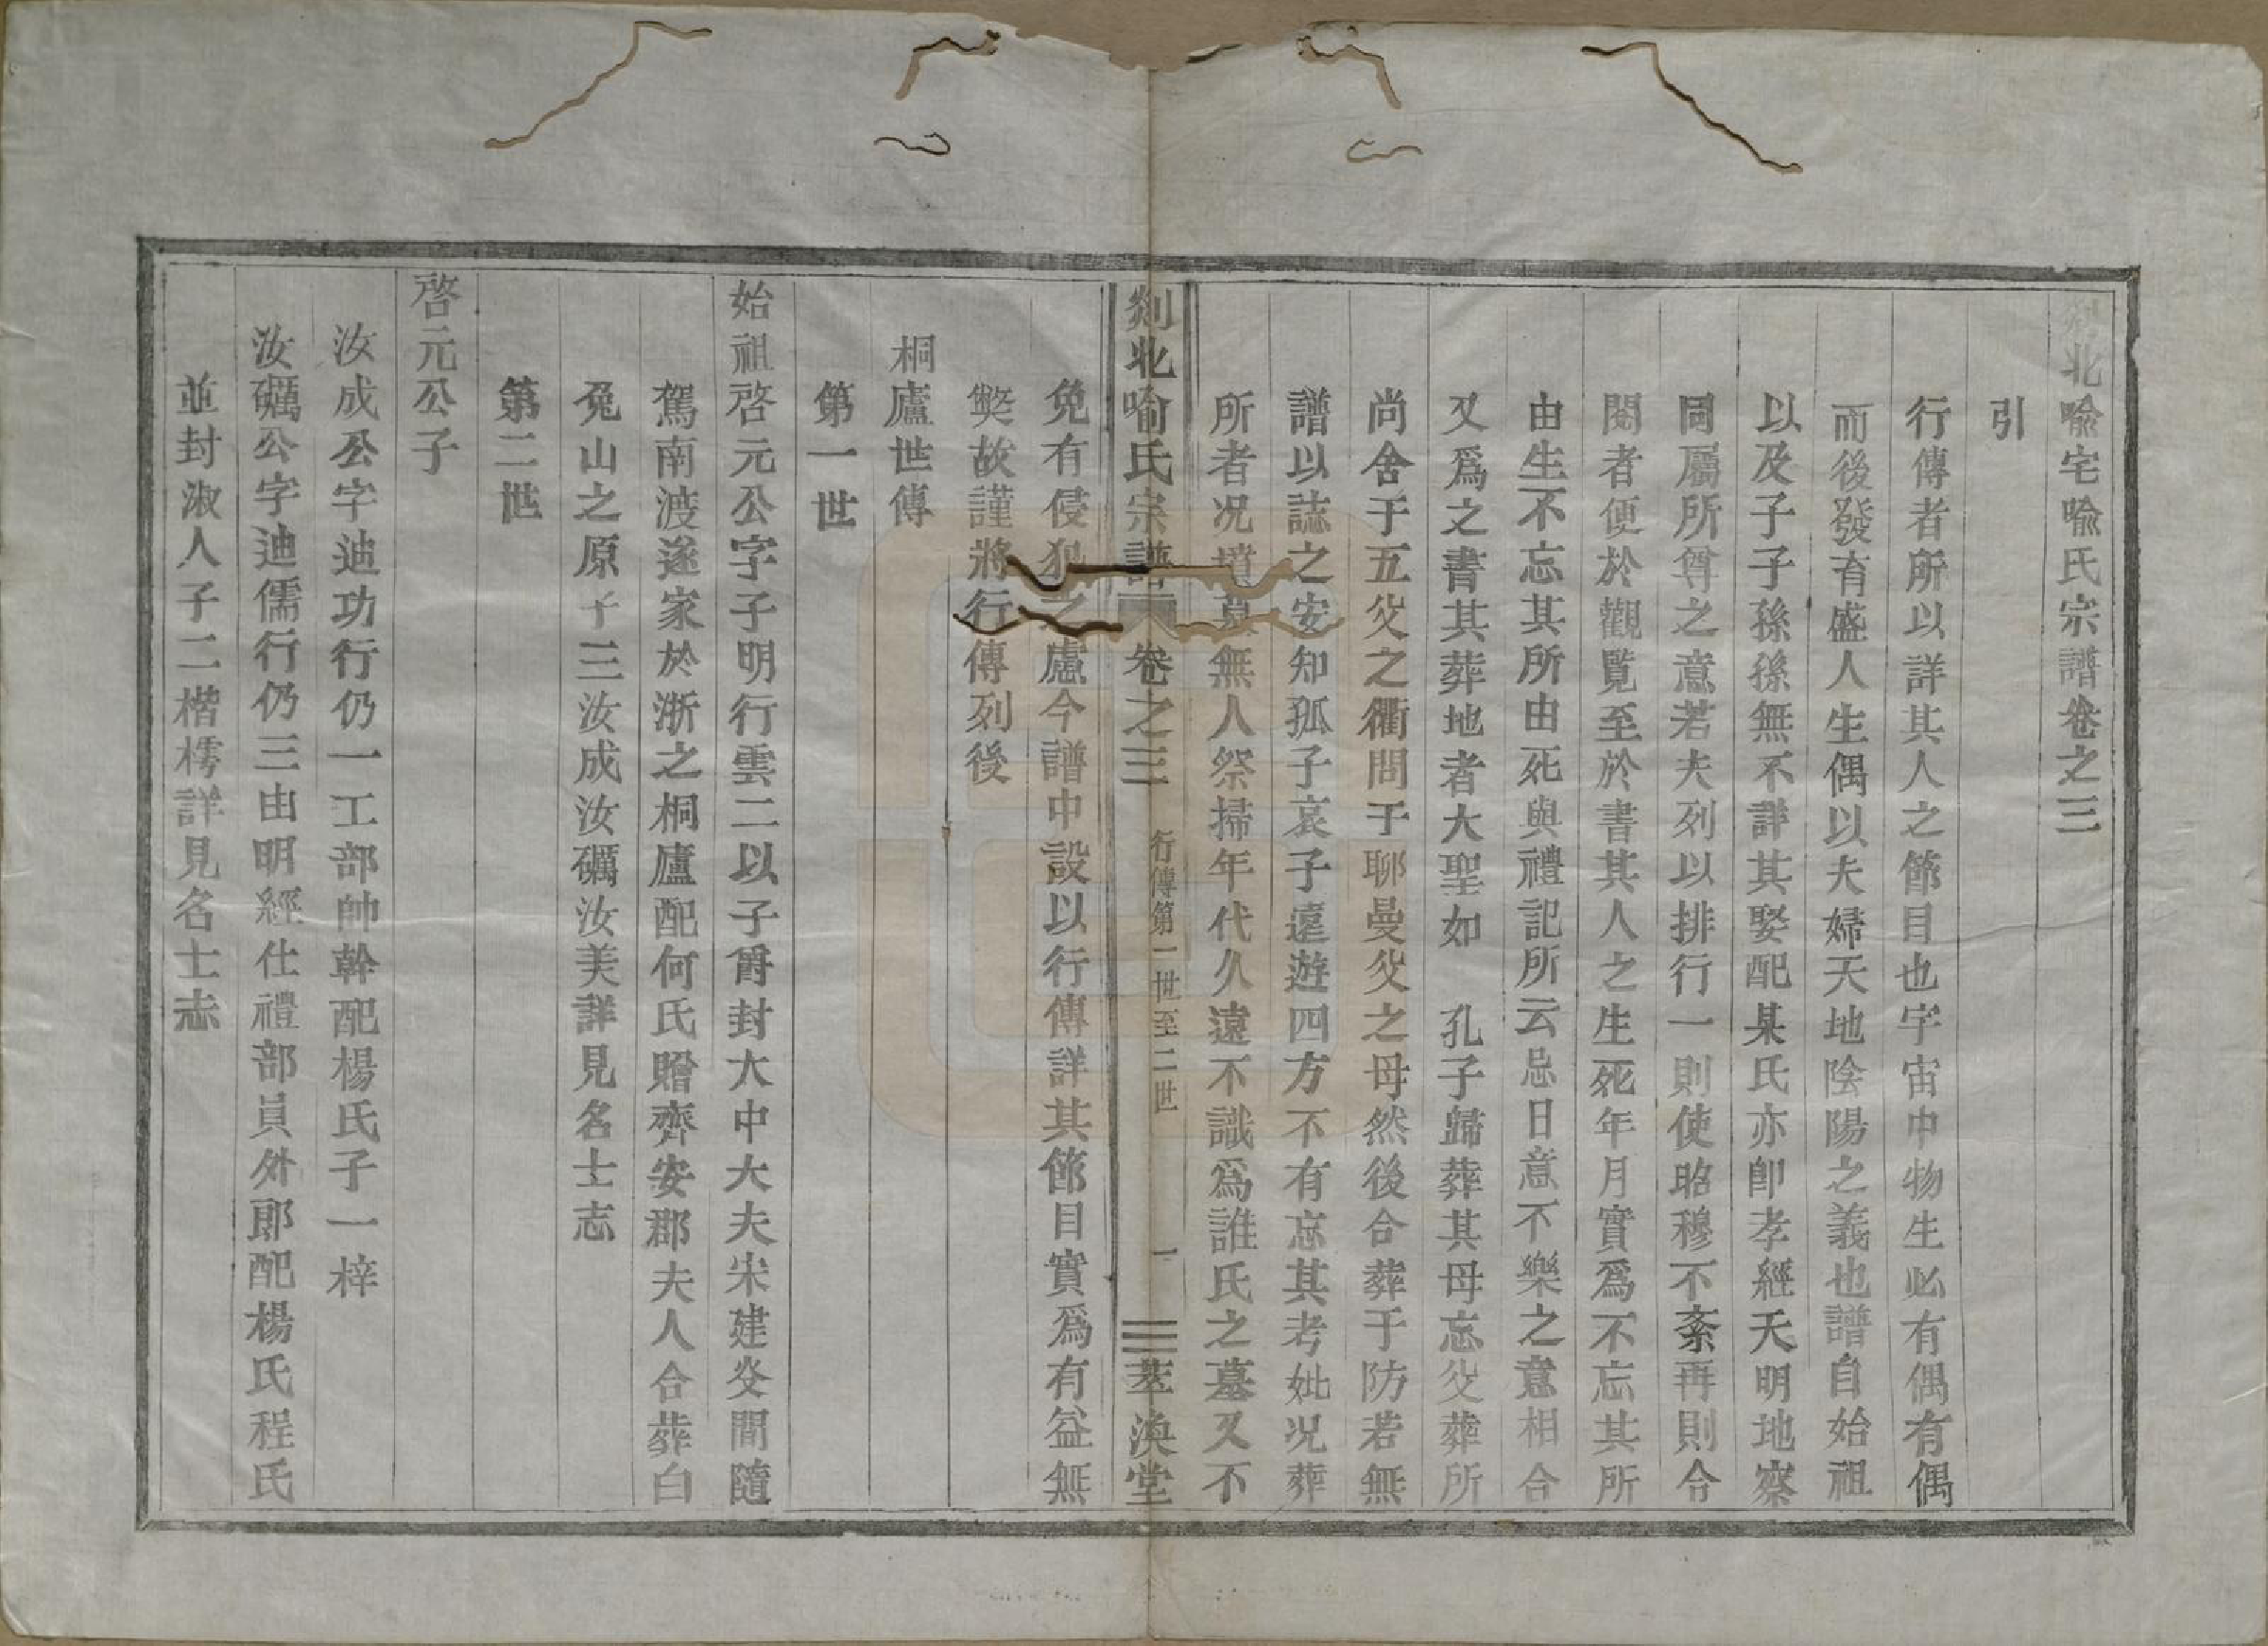 剡北喻宅喻氏宗譜卷之三
引
行傳者所以詳其人之節目也宇宙中物生必有偶有偶
而後發育盛人生偶以夫婦天地陰陽之義也譜自始祖
以及子子孫孫無不詳其娶配某氏亦卽孝經天明地察
同屬所尊之意若夫列以排行一則使昭穆不紊再則令
閱者便於觀覽至於書其人之生死年月實爲不忘其所
由生不忘其所由死與禮記所云忌日意不樂之意相合
又爲之書其葬地者大聖如　孔子歸葬其母忘父葬所
尚舍于五父之衢問于聊曼父之母然後合葬于防若無
譜以誌之安知孤子哀子遠遊四方不有忘其考妣况葬
所者况墳墓無人祭掃年代久遠不識爲誰氏之墓又不
剡北喻氏宗譜 卷之三 行傳第一世至二世 一 萃渙堂
免有侵犯之慮今譜中設以行傳詳其節目實爲有益無
獘故謹將行傳列後
桐廬世傳
第一世
始祖啓元公字子明行雲二以子爵封大中大夫宋建炎間隨
駕南渡遂家於浙之桐廬配何氏贈齊安郡夫人合葬白
兔山之原子三汝成汝礪汝美詳見名士志
第二世
啓元公子
汝成公字迪功行仍一工部帥幹配楊氏子一梓
汝礪公字迪儒行仍三由明經仕禮部員外郎配楊氏程氏
並封淑人子二楷樗詳見名士志